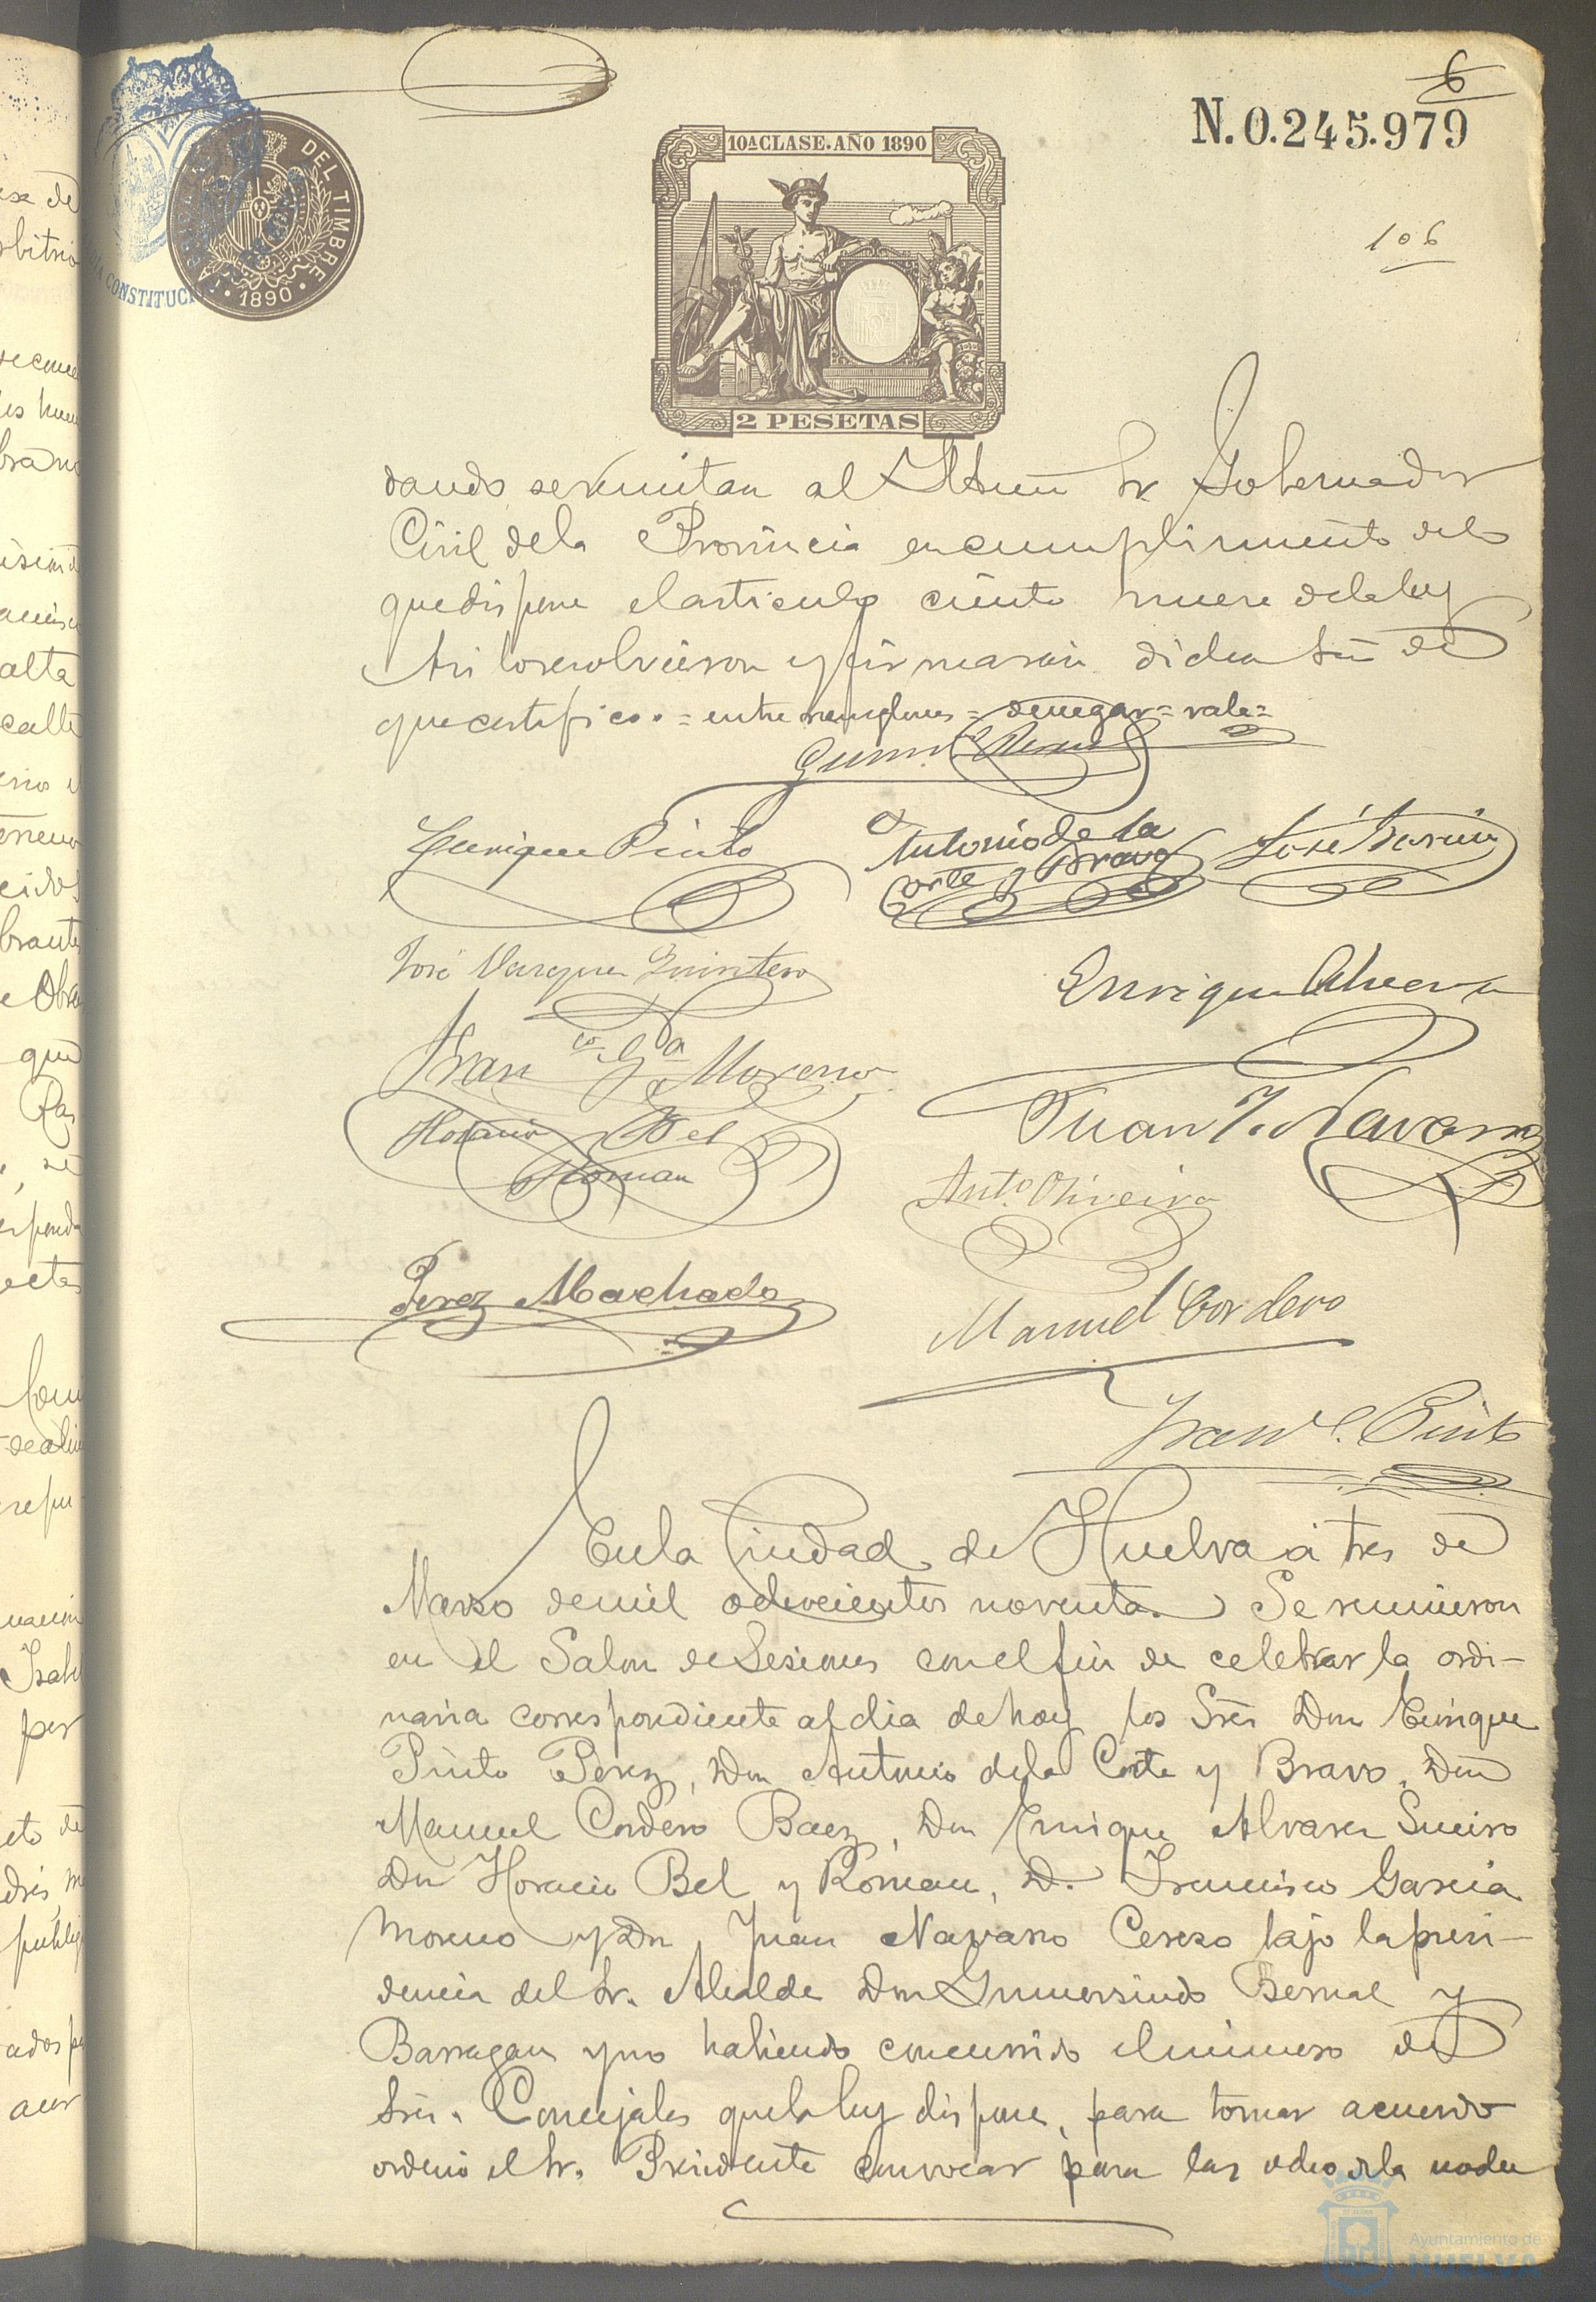 6
N.0.245.979
10ª CLASE. AÑO 1890
DEL TIMBRE
· 1890 ·
CONSTITUCI
106
2 PESETAS
dando se remitan al Iltmo Sr Gobernador
Civil dela Provincia en cumplimiento delo
que dispone el articulo ciento nueve dela ley
Asi lo resolvieron y firmaran dichos Srs de
que certifico. = entre renglones = denegar = vale =
Gumdo Bernal
Enrique Pinto
Antonio de la
Corte y Bravo
José Garcia
José Vazquez Quintero
Enrique Alvarez
Franco Ga Moreno
Juan J. Navarro
Horacio Bel
Roman
Anto Oliveira
Perez Machado
Manuel Cordero
Pinto
En la Ciudad de Huelva á tres de
Marzo demil ochocientos noventa. Se reunieron
en el Salon de Sesiones con el fin de celebrar la ordi-
naria correspondiente al dia de hoy los Sres Don Enrique
Pinto Perez, Don Antonio dela Corte y Bravo, Don
Manuel Cordero Baez, Don Enrique Alvarez Sueiro
Don Horacio Bel y Roman, D. Francisco Garcia
Moreno y Dn Juan Navarro Cerezo bajo la presi-
dencia del Sr. Alcalde Don Gumersindo Bernal y
Barragan y no habiendo concurrido el numero de
Sres. Concejales que la ley dispone, para tomar acuerdo
ordenó el Sr. Presidente convocar para las ocho dela noche
Ayuntamiento de
HUELVA